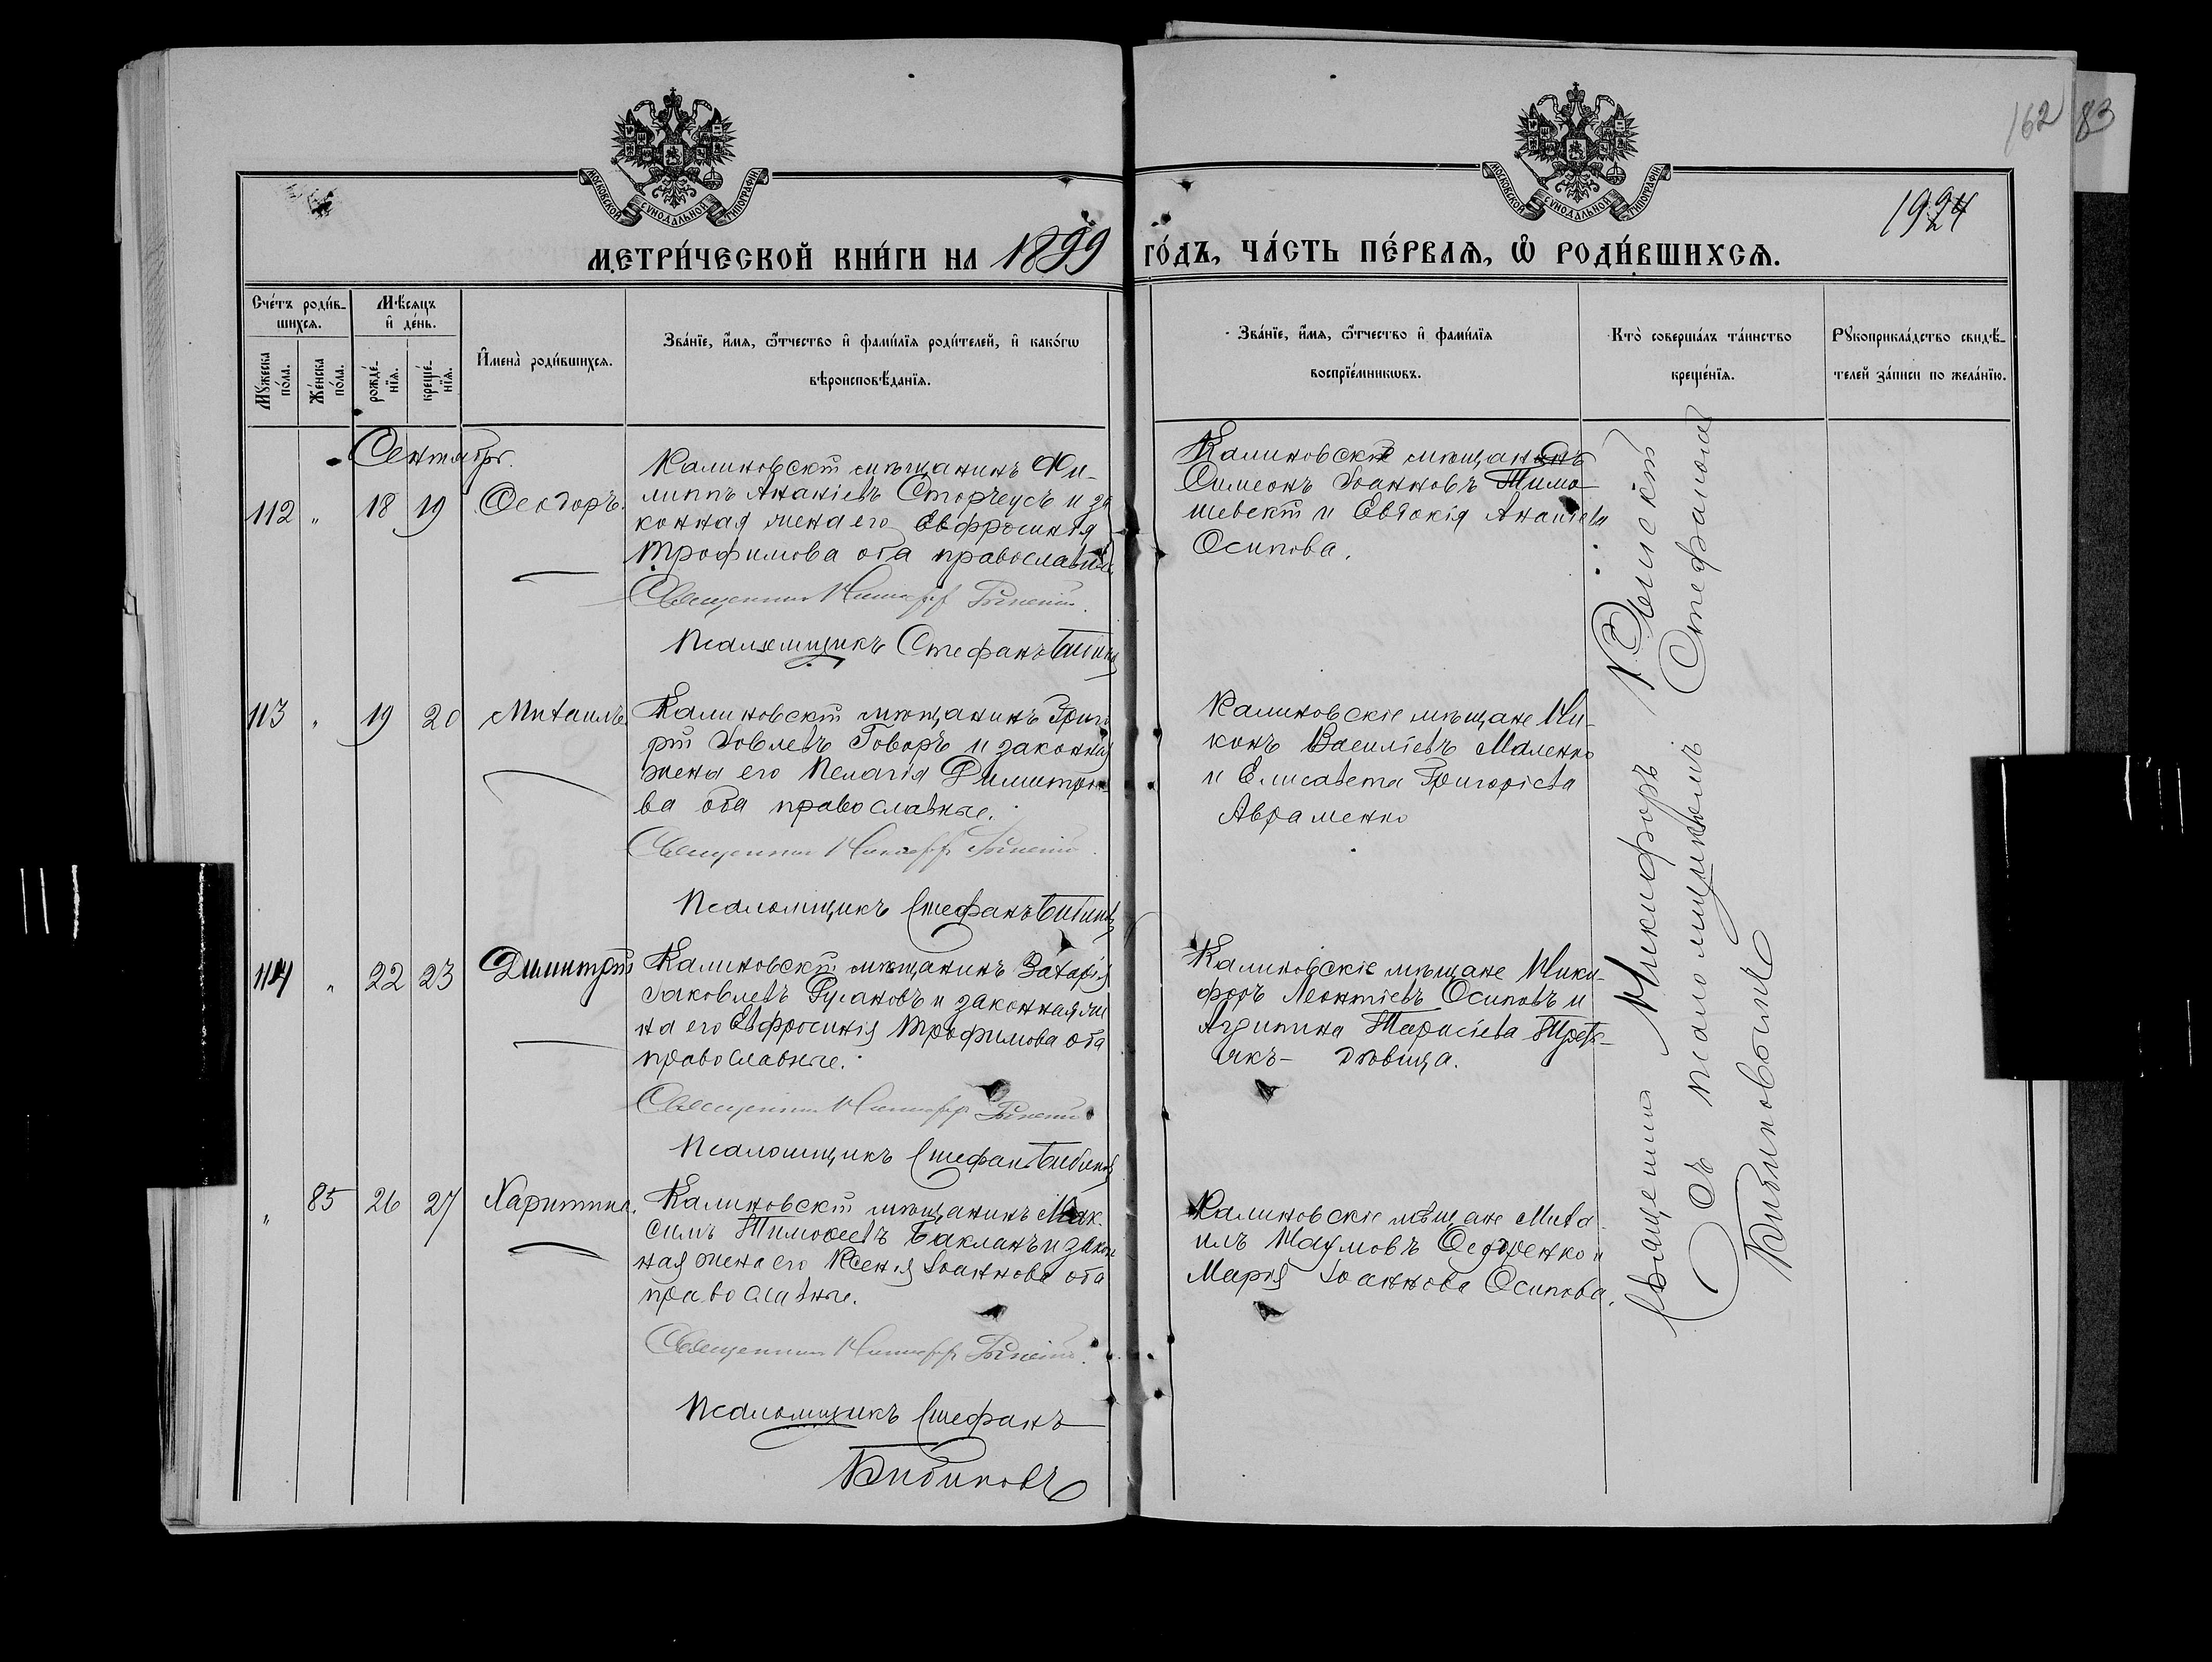 162 83
1924
МОСКОВСКОЙ СѴНОДАЛЬНОЙ ТИПОГРАФІИ
МОСКОВСКОЙ СѴНОДАЛЬНОЙ ТИПОГРАФІИ
МЕТРИ́ЧЕСКОЙ КНИ́ГИ НА 1899 ГО́ДЪ, ЧА́СТЬ ПЕ́РВАѦ, Ѽ РОДИ́ВШИХСѦ.
Сче́тъ роди́в-
шихсѧ.
Мꙋ́жеска по́ла.
Же́нска по́ла.
Мѣ́сѧцъ
и҆ де́нь.
рожде́-
нїѧ.
креще́-
нїѧ.
И҆мена̀ роди́вшихсѧ.
Зва́нїе, и҆́мѧ, ѻ҆́тчество и҆ фами́лїѧ роди́телей, и҆ како́гѡ
вѣроисповѣ́данїѧ.
Зва́нїе, и҆́мѧ, ѻ҆́тчество и҆ фами́лїѧ
воспрїе́мникѡвъ.
Кто̀ соверша́лъ та́инство
креще́нїѧ.
Рꙋкоприкла́дство свидѣ́-
телей за́писи по жела́нїю.
Сентябрь.
112 " 18 19 Ѳеодоръ.
Калиновскій мѣщанинъ Фи-
липпъ Ананіевъ Сторчеусъ и за
конная жена его Евфросинія
Трофимова оба православные
Священникъ Никифоръ
Псаломщикъ Стефанъ Бибиковъ
Калиновскіе мѣщанинъ
Симеонъ Іоанновъ Тимо-
шевскій и Евдокія Ананіева
Осипова.
113 " 19 20 Михаилъ.
Калиновскій мѣщанинъ Григо
рій Іовлевъ Говоръ и законная
жена его Пелагія Димитріе
ва оба православные.
Священникъ Никифоръ
Псаломщикъ Стефанъ Бибиковъ
Калиновскіе мѣщане Ни-
конъ Василіевъ Маленко
и Елисавета Григоріева
Авраменко
114 " 22 23 Димитрій
Калиновскій мѣщанинъ Захарія
Іаковлевъ Русановъ и законная же
на его Евфросинія Трофимова оба
православные.
Священникъ Никифоръ
Псаломщикъ Стефанъ Бибиковъ
Калиновскіе мѣщане Ники-
форъ Леонтіевъ Осиповъ и
Агрипина Тарасіева Трет-
якъ - дѣвица.
" 85 26 27 Харитина.
Калиновскій мѣщанинъ Мак-
симъ Тимоѳеевъ Бакланъ и закон
ная жена его Ксенія Іоаннова оба
православные.
Священникъ Никифоръ
Псаломщикъ Стефанъ
Бибиковъ
Калиновскіе мѣщане Миха-
илъ Наумовъ Ѳедоренко и
Марія Іоаннова Осипова.
Священникъ Никифоръ
Съ псаломщикомъ Стефаномъ
Бибиковымъ